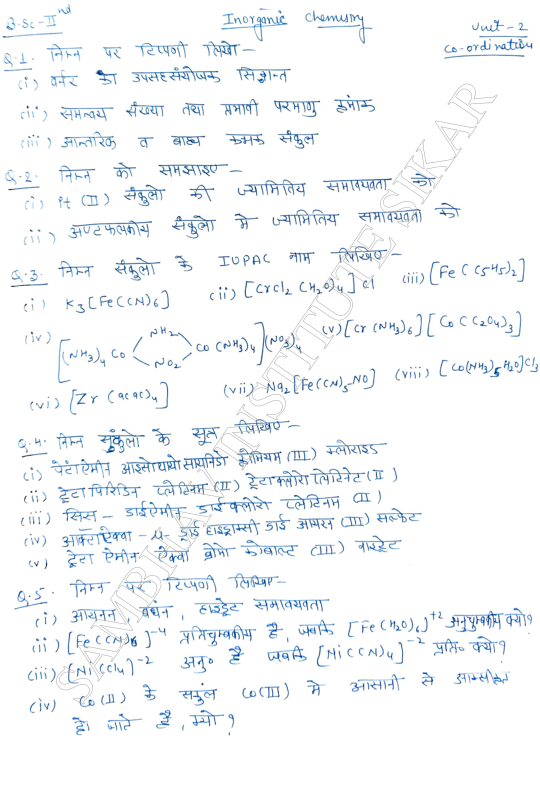 B.Sc-IInd
Inorganic Chemistry
Unit-2
Co-ordination
Q.1. निम्न पर टिप्पणी लिखो-
(i) वर्नर का उपसहसंयोजक सिद्धान्त
(ii) समन्वय संख्या तथा प्रभावी परमाणु क्रमांक
(iii) आन्तरिक व बाह्य कक्षक संकुल
Q.2. निम्न को समझाइए-
(i) Pt (II) संकुलो की ज्यामितिय समावयवता को
(ii) अष्टफलकीय संकुलो मे ज्यामितिय समावयवता को
Q.3. निम्न संकुलो के IUPAC नाम लिखिए-
(i) K3[Fe(CN)6] (ii) [CrCl2(H2O)4]Cl (iii) [Fe(C5H5)2]
(iv) [(NH3)4 Co NH2 NO2 Co(NH3)4](NO3)4 (v) [Cr(NH3)6][Co(C2O4)3]
(vi) [Zr(acac)4] (vii) Na2[Fe(CN)5NO] (viii) [Co(NH3)5H2O]Cl3
Q.4. निम्न संकुलो के सूत्र लिखिए-
(i) पेंटाऐमीन आइसोथायोसायनिडो क्रोमियम (III) क्लोराइड
(ii) ट्रेटापिरिडिन प्लेटिनम (II) ट्रेटाक्लोरोप्लेटिनेट (II)
(iii) सिस- डाईऐमीन डाईक्लोरो प्लेटिनम (II)
(iv) आक्टाऐक्वा-μ-डाई हाइड्राक्सी डाई आयरन (III) सल्फेट
(v) ट्रेटा ऐमीन ऐक्वा ब्रोमो कोबाल्ट (III) नाइट्रेट
Q.5. निम्न पर टिप्पणी लिखिए-
(i) आयनन, बंधन, हाइड्रेट समावयवता
(ii) [Fe(CN)6]-4 प्रतिचुम्बकीय है, जबकि [Fe(H2O)6]+2 अनुचुम्बकीय क्यो?
(iii) [NiCl4]-2 अनु० है जबकि [Ni(CN)4]-2 प्रति० क्यो?
(iv) Co(II) के संकुल Co(III) मे आसानी से आक्सीकृत
हो जाते है, क्यो?
SAMBHAV INSTITUTE SIKAR